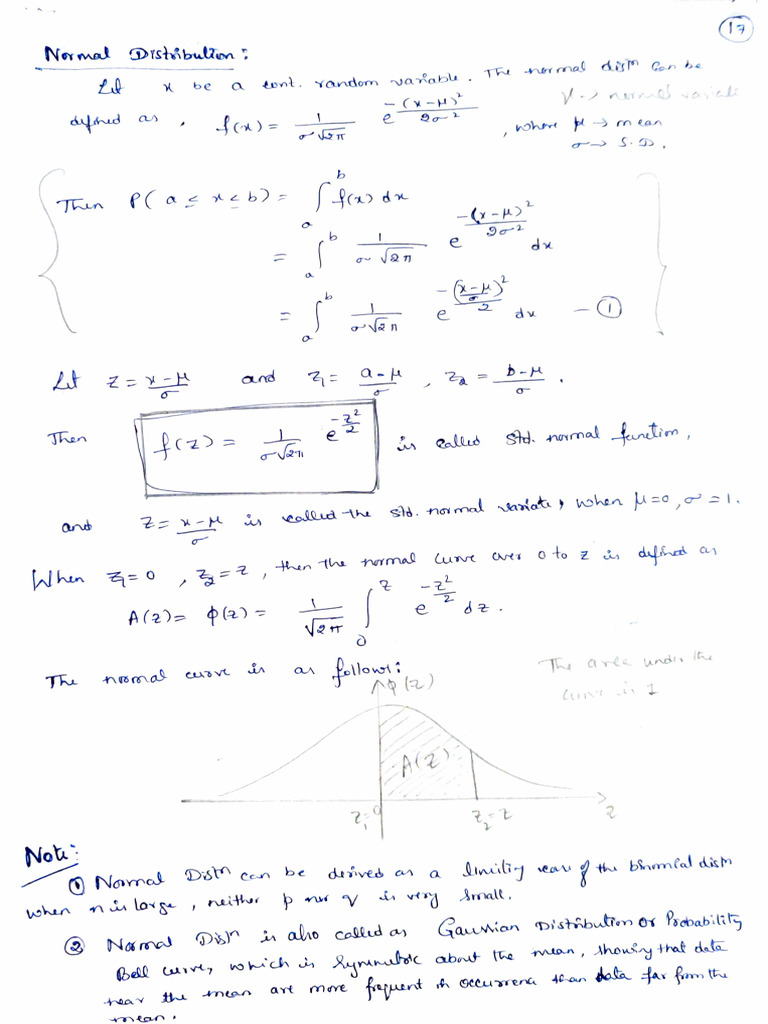 17
Normal Distribution:
Let x be a cont. random variable. The normal distⁿ can be
defined as, f(x) = 1/(σ√2π) e^(-(x-μ)²/2σ²), where μ → mean
γ → normal variate
σ → S.D.
Then P(a ≤ x ≤ b) = ∫_a^b f(x) dx
= ∫_a^b 1/(σ√2π) e^(-(x-μ)²/2σ²) dx
= ∫_a^b 1/(σ√2π) e^(-((x-μ)/σ)²/2) dx — ①
Let z = (x-μ)/σ and z₁ = (a-μ)/σ, z₂ = (b-μ)/σ.
Then f(z) = 1/(σ√2π) e^(-z²/2) is called std. normal function,
and z = (x-μ)/σ is called the std. normal variate, when μ=0, σ=1.
When z₁=0, z₂=z, then the normal curve over 0 to z is defined as
A(z) = φ(z) = 1/√2π ∫_0^z e^(-z²/2) dz.
The normal curve is as follows:
The area under the
curve is 1
φ(z)
A(z)
z₁=0 z₂=z z
Note:
① Normal Distⁿ can be derived as a limiting case of the binomial distⁿ
when n is large, neither p nor q is very small.
② Normal Distⁿ is also called as Gaussian Distribution or Probability
Bell curve, which is symmetric about the mean, showing that data
near the mean are more frequent in occurrence than data far from the
mean.